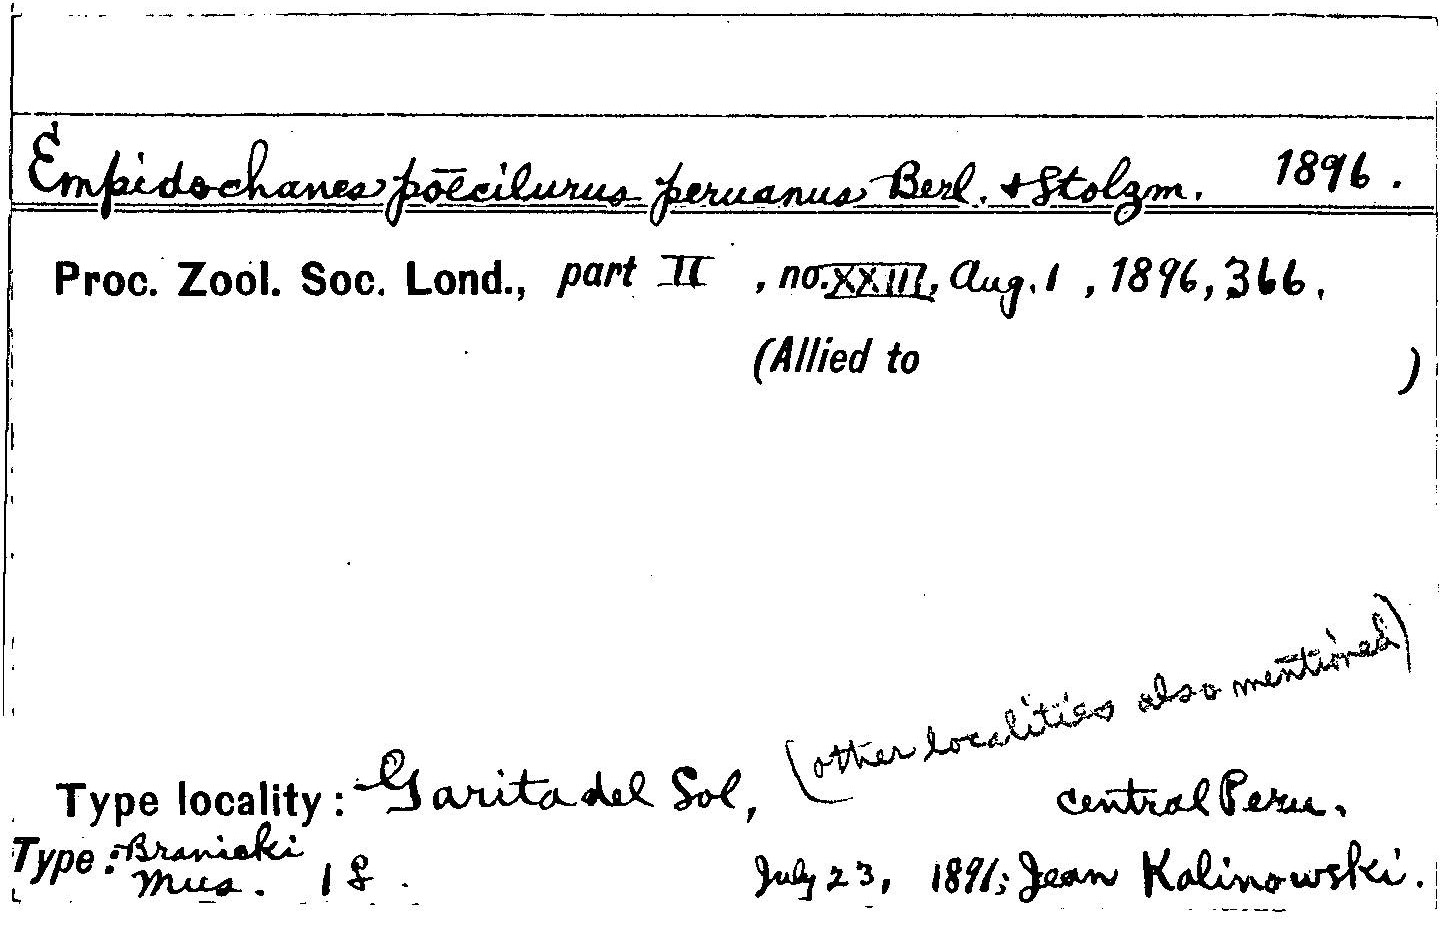 Empidochanes pōecilurus peruanus Berl. & Stolzm. 1896.
Proc. Zool. Soc. Lond., part II, no. XXIII, Aug. 1, 1896, 366.
(Allied to )
(other localities also mentioned)
Type locality: Garita del Sol, central Peru.
Type: Branicki
Mus. 1 ♀. July 23, 1891; Jean Kalinowski.